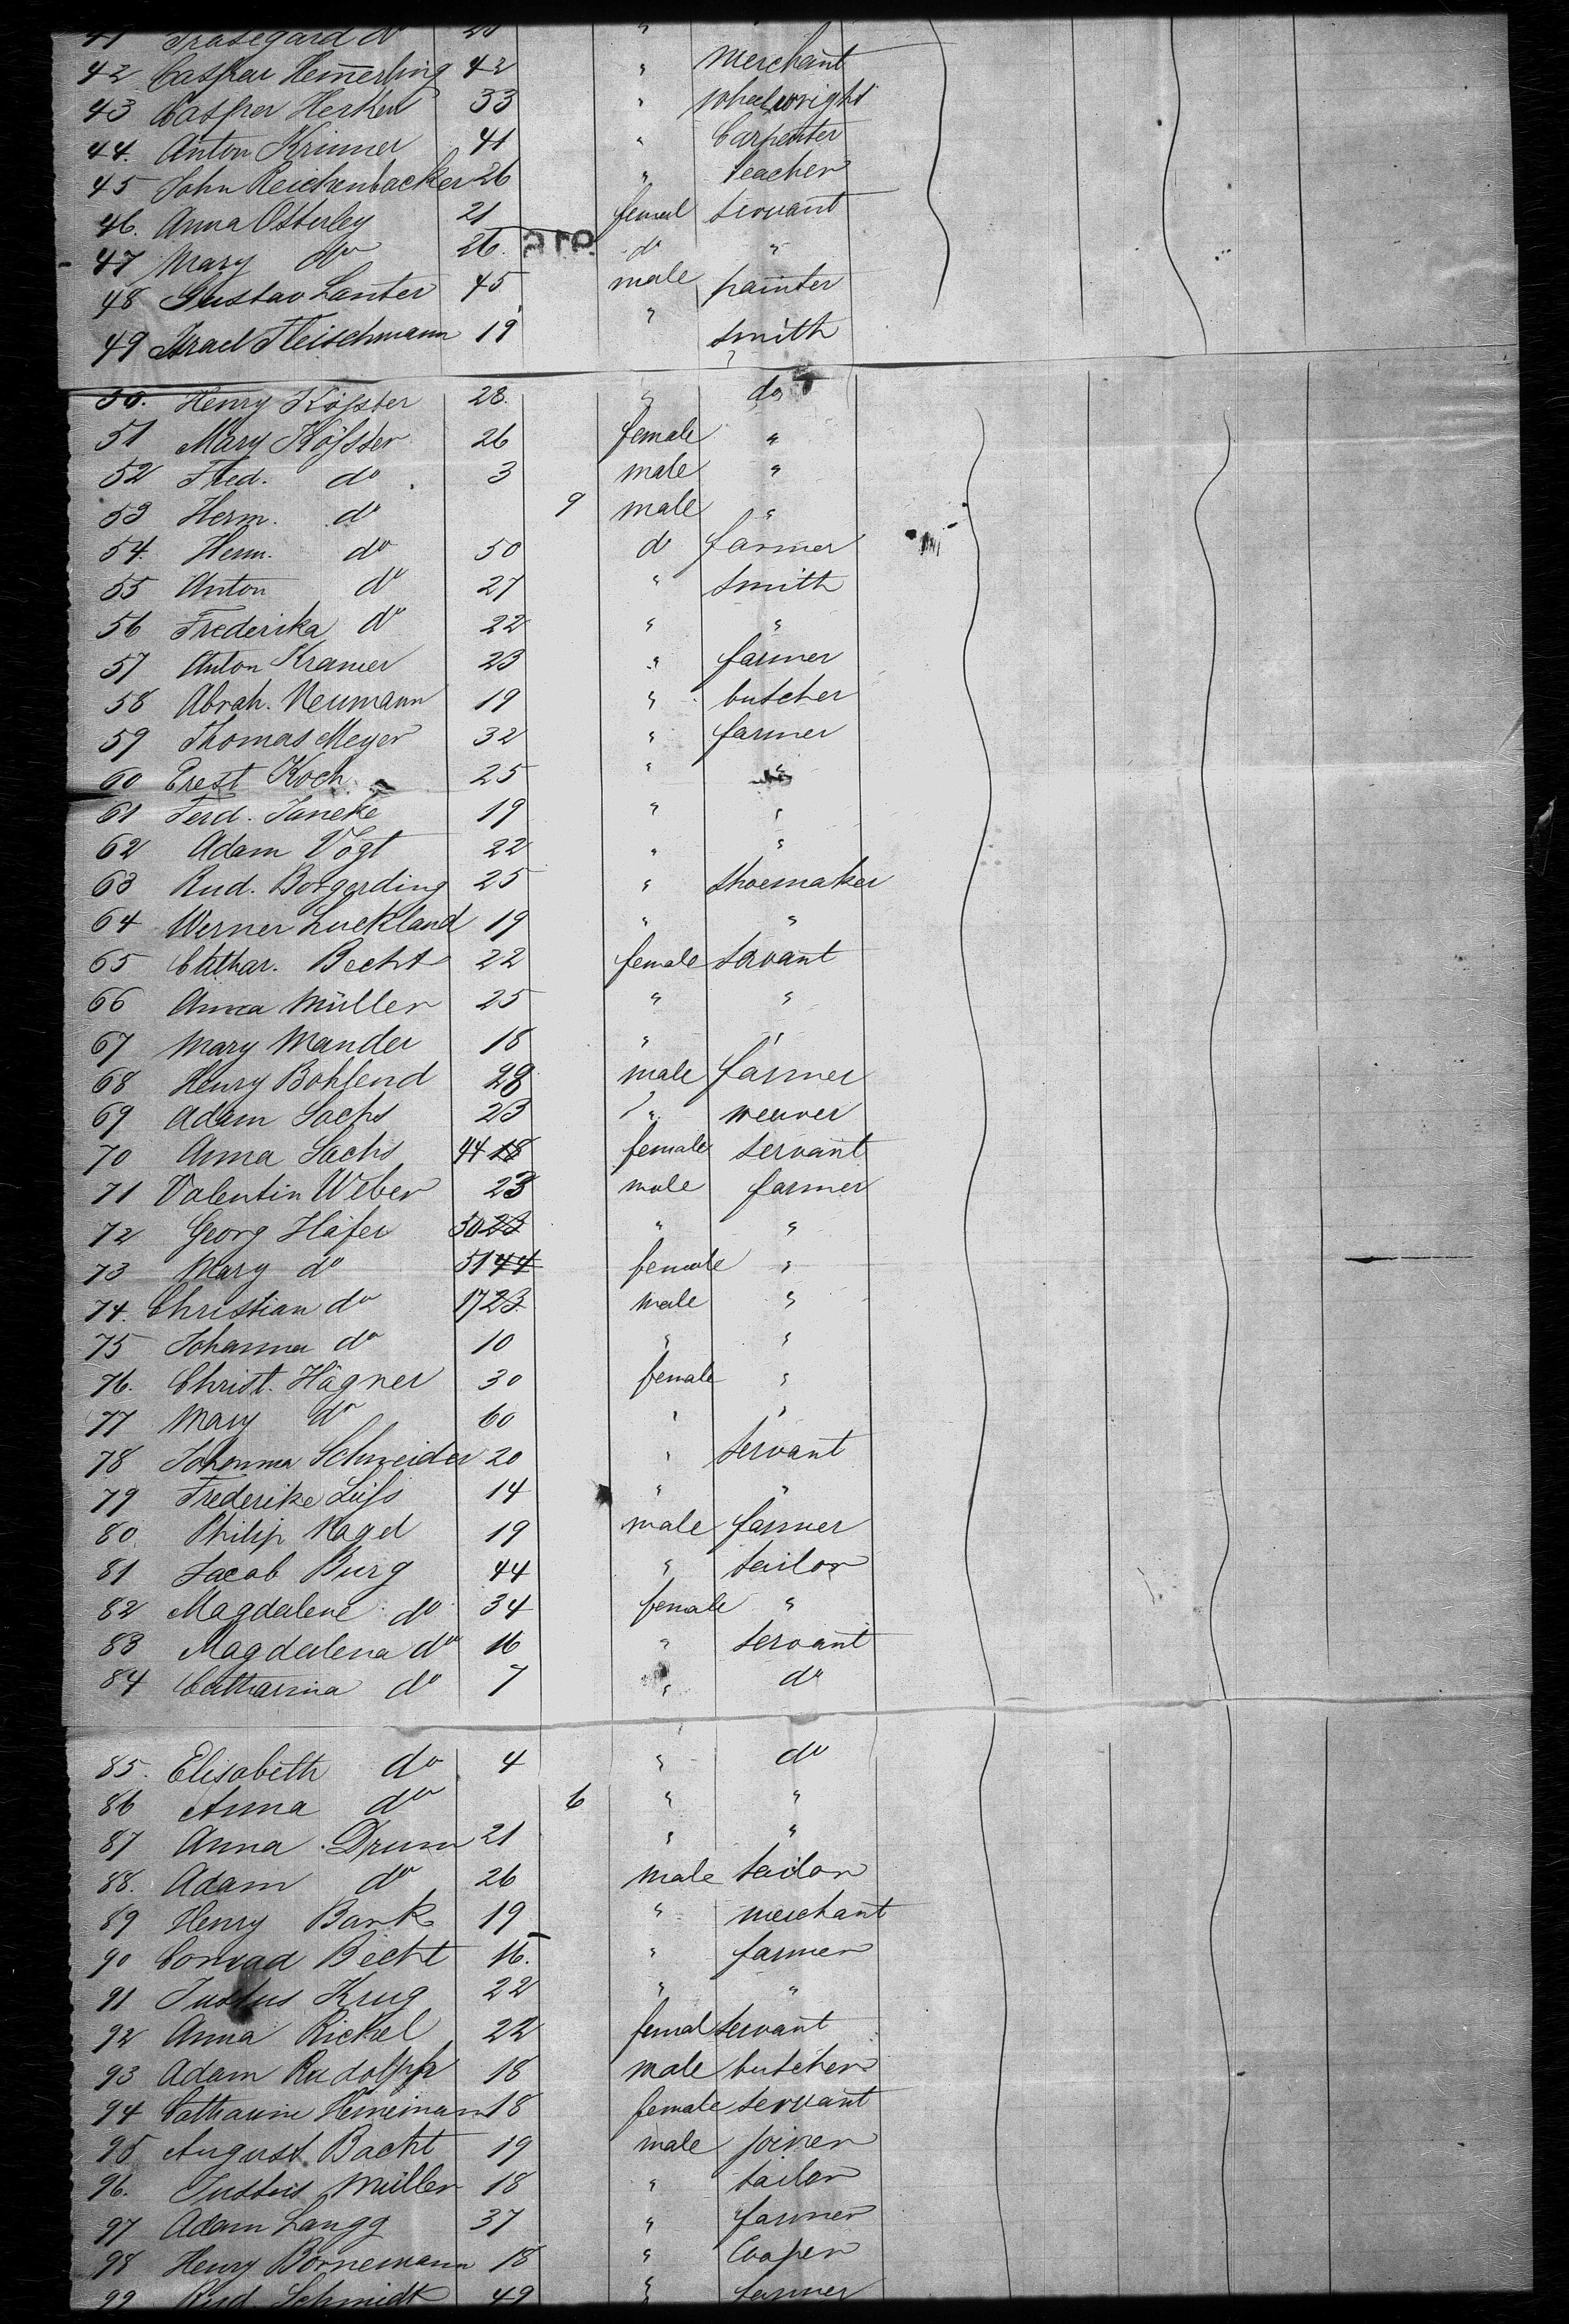 41 Irasegard do 20 "
42 Caspar Hem̄erling 42 " merchant
43 Casper Herken 33 " wheelwright
44. Anton Krimmer 41 " Carpenter
45 John Reichenbacker 26 " teacher
46. Anna Osterley 21 femal servant
47 Mary do 26. do "
48 Gustav Lanter 45 male painter
49 Israel Fleischmann 19 " smith
50. Henry Kößter 28. " do
51 Mary Kößter 26 female "
52 Fred. do 3 male "
53 Herm. do 9 male "
54. Herm. do 50 do farmer
55 Anton do 27 " smith
56 Frederika do 22 " "
57 Anton Kramer 23 " farmer
58 Abrah. Neumann 19 " butcher
59 Thomas Meyer 32 " farmer
60 Erest Koch 25 " "
61 Ferd. Janeke 19 " "
62 Adam Vogt 22 " "
63 Rud. Borgerding 25 " shoemaker
64 Werner Luckland 19 " "
65 Cathar. Becht 22 female servant
66 Anna Müller 25 " "
67 Mary Mander 18 " "
68 Henry Bohlend 28 male farmer
69 Adam Sachs 23 " weaver
70 Anna Sachs 44 18 female servant
71 Valentin Weber 23 male farmer
72 Georg Häfer 50 23 " "
73 Mary do 51 44 female "
74. Christian do 17 23 male "
75 Johanna do 10 " "
76. Christ. Hägner 30 female "
77 Mary do 60 " "
78 Johanna Schneider 20 " servant
79 Frederike Lüß 14 " "
80. Philip Nagel 19 male farmer
81 Jacob Burg 44 " tailor
82 Magdalene do 34 female "
83 Magdalena do 16 " servant
84 Catharina do 7 " do
85. Elisabeth do 4 " do
86 Anna do 6 " "
87 Anna Drum 21 " "
88. Adam do 26 male tailor
89 Henry Bank 19 " merchant
90 Conrad Becht 16. " farmer
91 Justus Krug 22 " "
92 Anna Rickel 22 femal servant
93 Adam Rudolph 18 male butcher
94 Catharine Heineman 18 female servant
95 August Bacht 19 male joiner
96. Justus Müller 18 " tailor
97 Adam Langg 37 " farmer
98 Henry Bornemann 18 " Cooper
99 Rud. Schmidt 49 " farmer